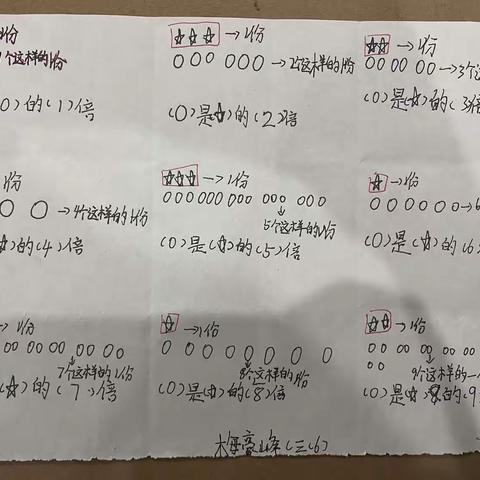 1份
☆☆☆→1份
☆☆→1份
个这样的1份
○○ ○○○○→2个这样的1份
○○ ○○ ○○→3个
(○)的(1)倍
(○)是(☆)的(2)倍
(○)是(☆)的(3)倍
1份
☆☆☆→1份
☆→1份
○ ○→4个这样的1份
○○○ ○○○ ○○○ ○○○ ○○○
○○○○○○→6
5个这样的1份
☆)的(4)倍
(○)是(☆)的(5)倍
(○)是(☆)的(6)
→1份
☆→1份
☆☆→1份
○○ ○○ ○○ ○○ ○○
○ ○ ○ ○ ○ ○ ○ ○
○○ ○○ ○○ ○○ ○○
7个这样的1份
8个这样的1份
○○ 9个这样的一
(☆)的(7)倍
(○)是(☆)的(8)倍
(○)是(☆)的(9
梅豪峰(三(6)